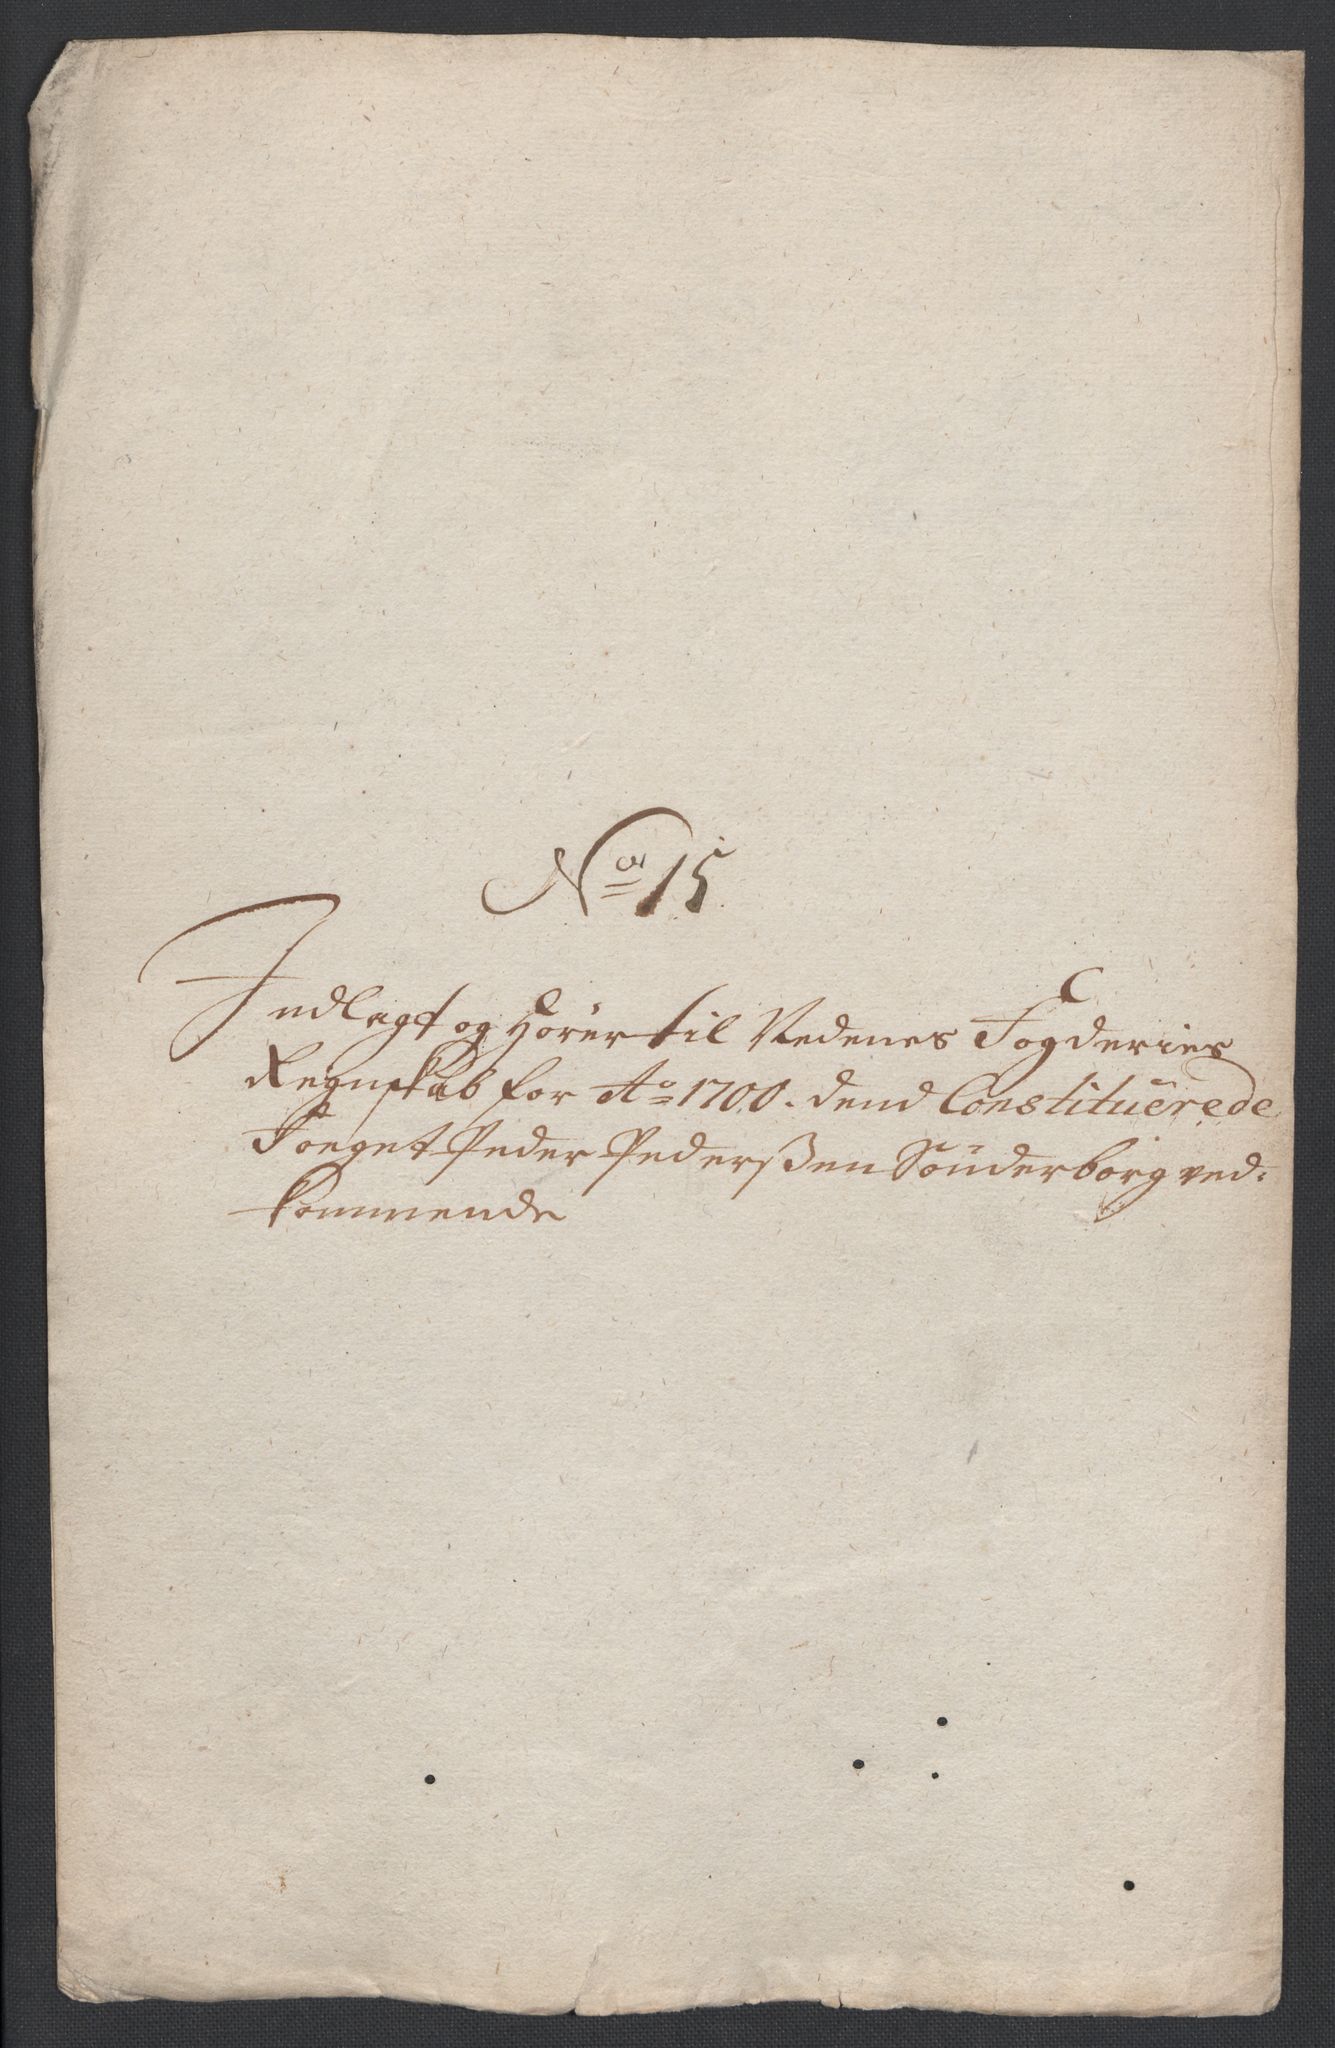 No 15
Indlagt og Hörer til Nedenes Fogderies
Regnskab for Ao 1700. dend Constituerede
Foeget Peder Pederßen Sönderborg ved-
kommende